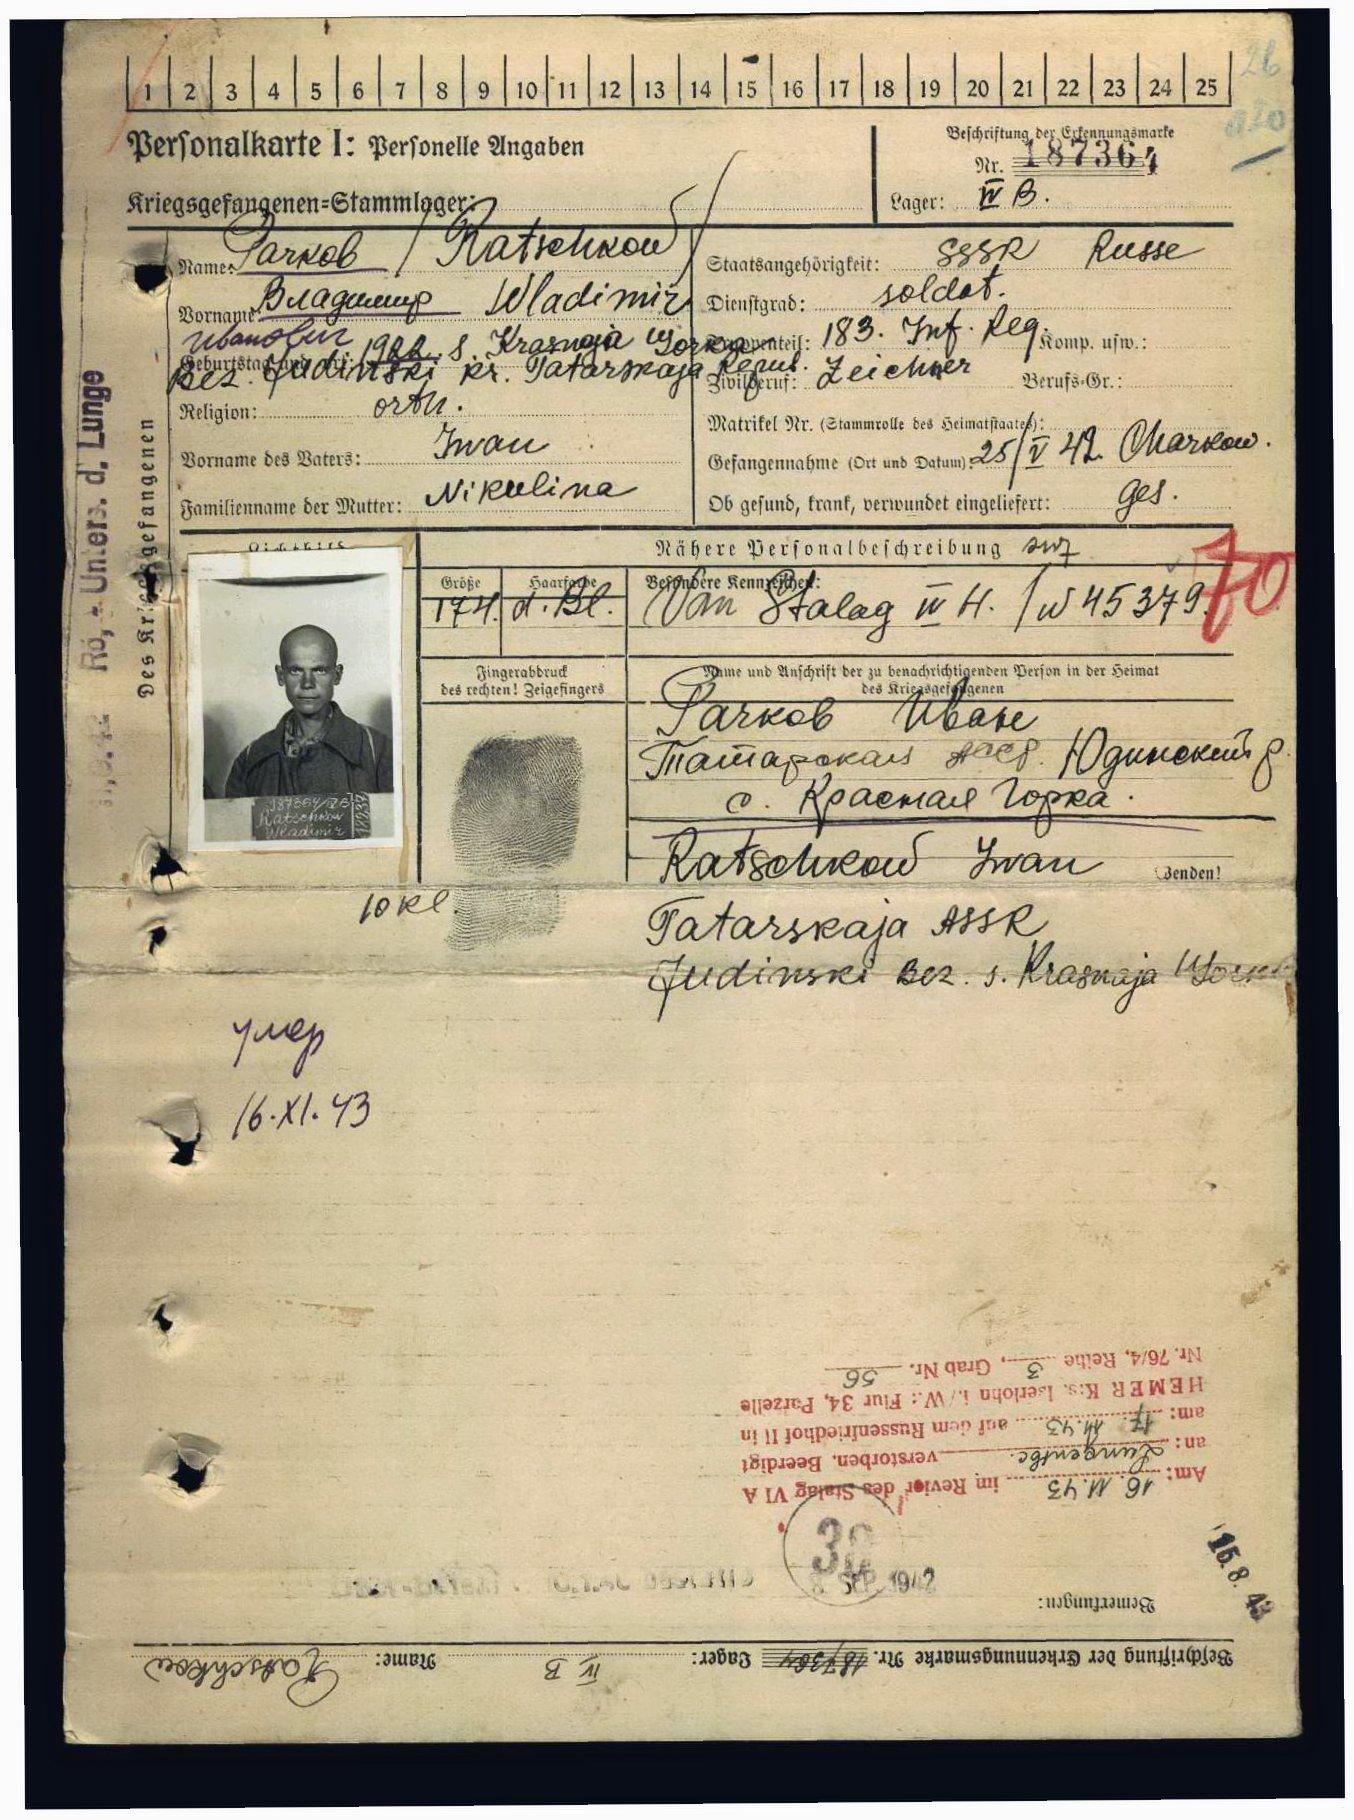 1 2 3 4 5 6 7 8 9 10 11 12 13 14 15 16 17 18 19 20 21 22 23 24 25
26
Personalkarte I: Personelle Angaben
Beschriftung der Erkennungsmarke
Nr. 187364
Kriegsgefangenen-Stammlager:
Lager: IV B.
Name: Рачков / Ratschkow
Staatsangehörigkeit: SSSR Russe
Vorname: Владимир Wladimir
Dienstgrad: soldat.
Иванович
Geburtstag und 1922. s. Krasnaja Gorka
Truppenteil: 183. Inf. Reg. Komp. usw.:
Bez. Judinski kr. Tatarskaja Repub.
Zivilberuf: Zeichner Berufs-Gr.:
Religion: orth.
Matrikel Nr. (Stammrolle des Heimatstaates):
Vorname des Vaters: Iwan
Gefangennahme (Ort und Datum): 25/V 42. Charkow.
Familienname der Mutter: Nikulina
Ob gesund, krank, verwundet eingeliefert: ges.
Rö.-Unters. d. Lunge
Des Kriegsgefangenen
Lichtbild
Nähere Personalbeschreibung
Größe Haarfarbe Besondere Kennzeichen:
174. d. Bl. Von Stalag IV H. / 45379.
70
Fingerabdruck
des rechten! Zeigefingers
Name und Anschrift der zu benachrichtigenden Person in der Heimat
des Kriegsgefangenen
Рачков Иван
Татарская АССР. Юдинский р.
с. Красная Горка.
187364/IV B
Ratschkow
Wladimir
Ratschkow Iwan
Wenden!
10 kl.
Tatarskaja ASSR
Judinski Bez. s. Krasnaja Gorka
умер
16.XI.43
Am: 16.11.43 im Revier des Stalag VI A
an: Lungentbc. verstorben. Beerdigt
am: 17.11.43 auf dem Russenfriedhof II in
HEMER K:s. Iserlohn i./W.: Flur 34, Parzelle
Nr. 76/4, Reihe 3, Grab Nr. 56
SEP. 1942
15.8.43
Bemerkungen:
Beschriftung der Erkennungsmarke Nr. 187364 Lager: IV B Name: Ratschkow